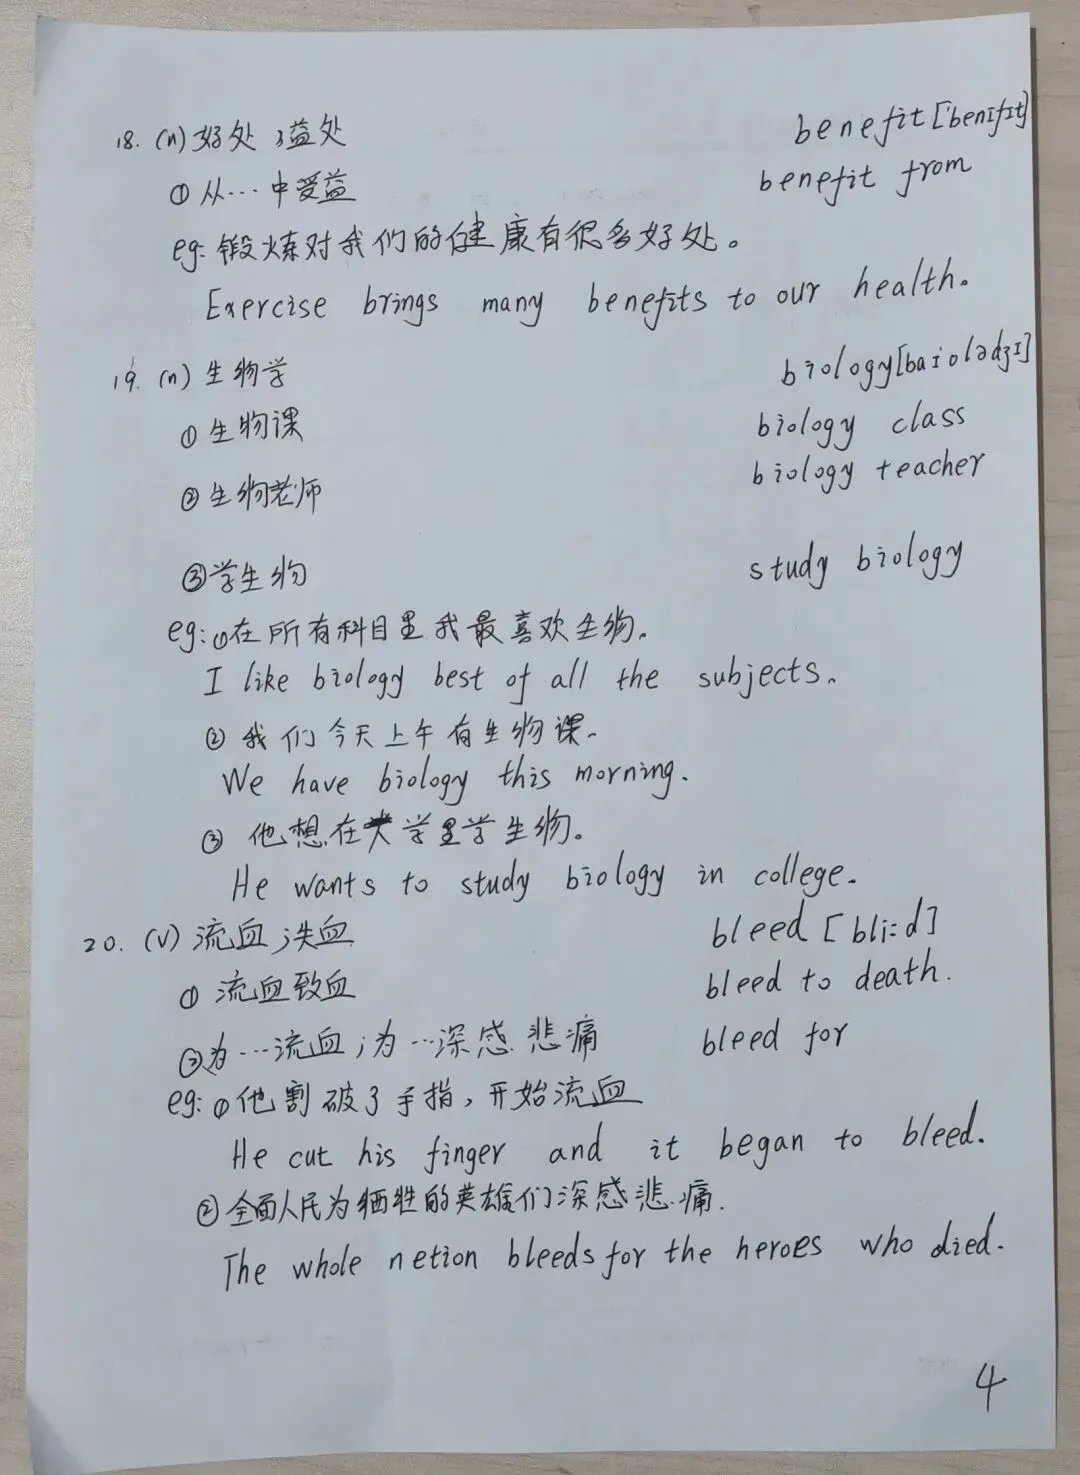 18. (n) 好处；益处 benefit['benɪfɪt]
① 从…中受益 benefit from
eg: 锻炼对我们的健康有很多好处。
Exercise brings many benefits to our health.
19. (n) 生物学 biology[baɪolədʒɪ]
① 生物课 biology class
② 生物老师 biology teacher
③ 学生物 study biology
eg: ①在所有科目里我最喜欢生物。
I like biology best of all the subjects.
② 我们今天上午有生物课.
We have biology this morning.
③ 他想在大学里学生物。
He wants to study biology in college.
20. (v) 流血；失血 bleed [bli:d]
① 流血致血 bleed to death.
②为…流血；为…深感悲痛 bleed for
eg: ①他割破了手指，开始流血
He cut his finger and it began to bleed.
② 全面人民为牺牲的英雄们深感悲痛.
The whole netion bleeds for the heroes who died.
4